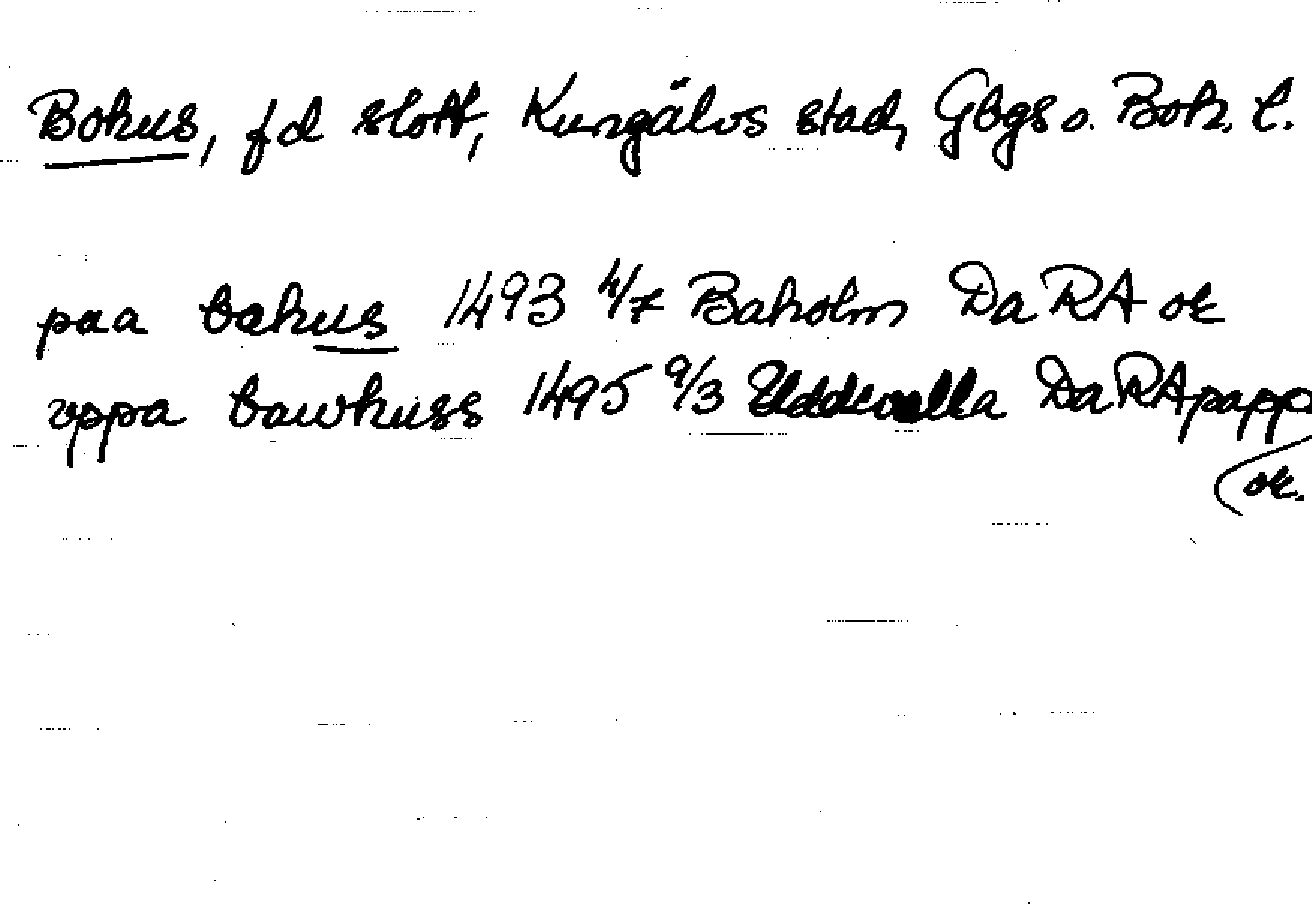 Bohus, fd slott, Kungälvs stad, Gbgs o. Boh. l.
paa bahus 1493 4/7 Baholm DaRA ok
vppa bawhuss 1495 9/3 Uddevalla DaRApapp
ok.